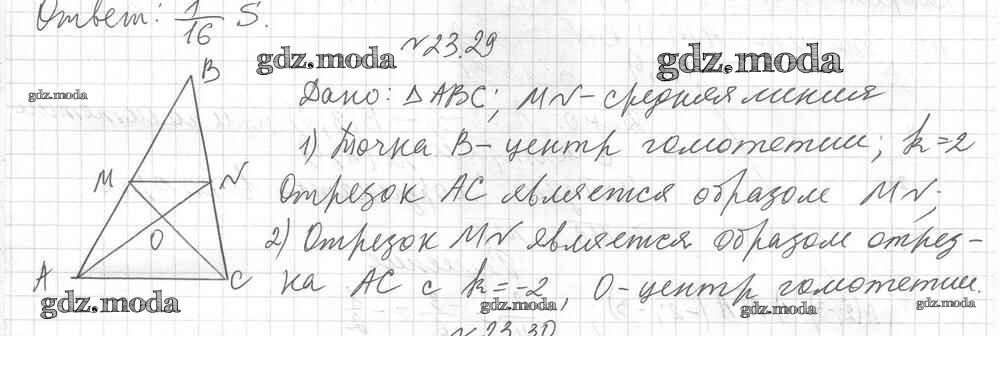 Ответ: 1/16 S.
№23.29
gdz.moda
gdz.moda
gdz.moda
Дано: △ABC; MN - средняя линия
1) Точка B - центр гомотетии; k=2
Отрезок AC является образом MN;
2) Отрезок MN является образом отрез-
ка AC с k=-2, O-центр гомотетии.
B
M
N
O
A
C
gdz.moda
gdz.moda
gdz.moda
gdz.moda
№23.30